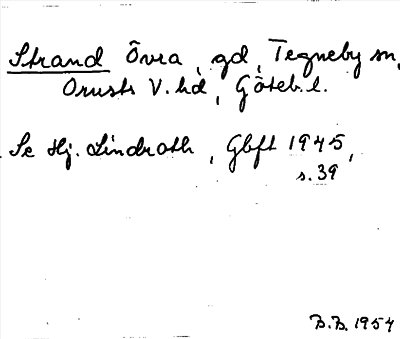 Strand Övra, gd, Tegneby sn,
Orusts V. hd, Göteb. l.
Se Hj. Lindroth, Gbft 1945,
s. 39
B.B. 1954